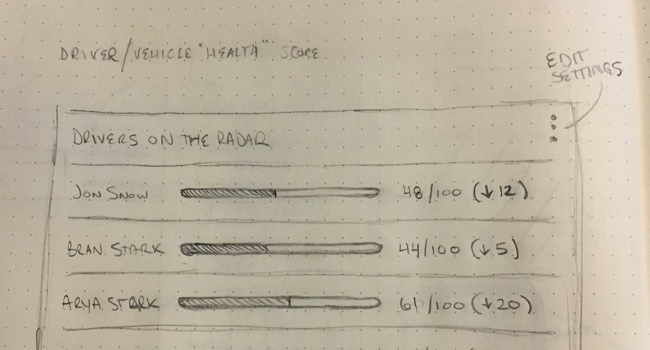 DRIVER/VEHICLE "HEALTH" SCORE
EDIT
SETTINGS
DRIVERS ON THE RADAR
JON SNOW 48/100 (↓12)
BRAN STARK 44/100 (↓5)
ARYA STARK 61/100 (↓20)